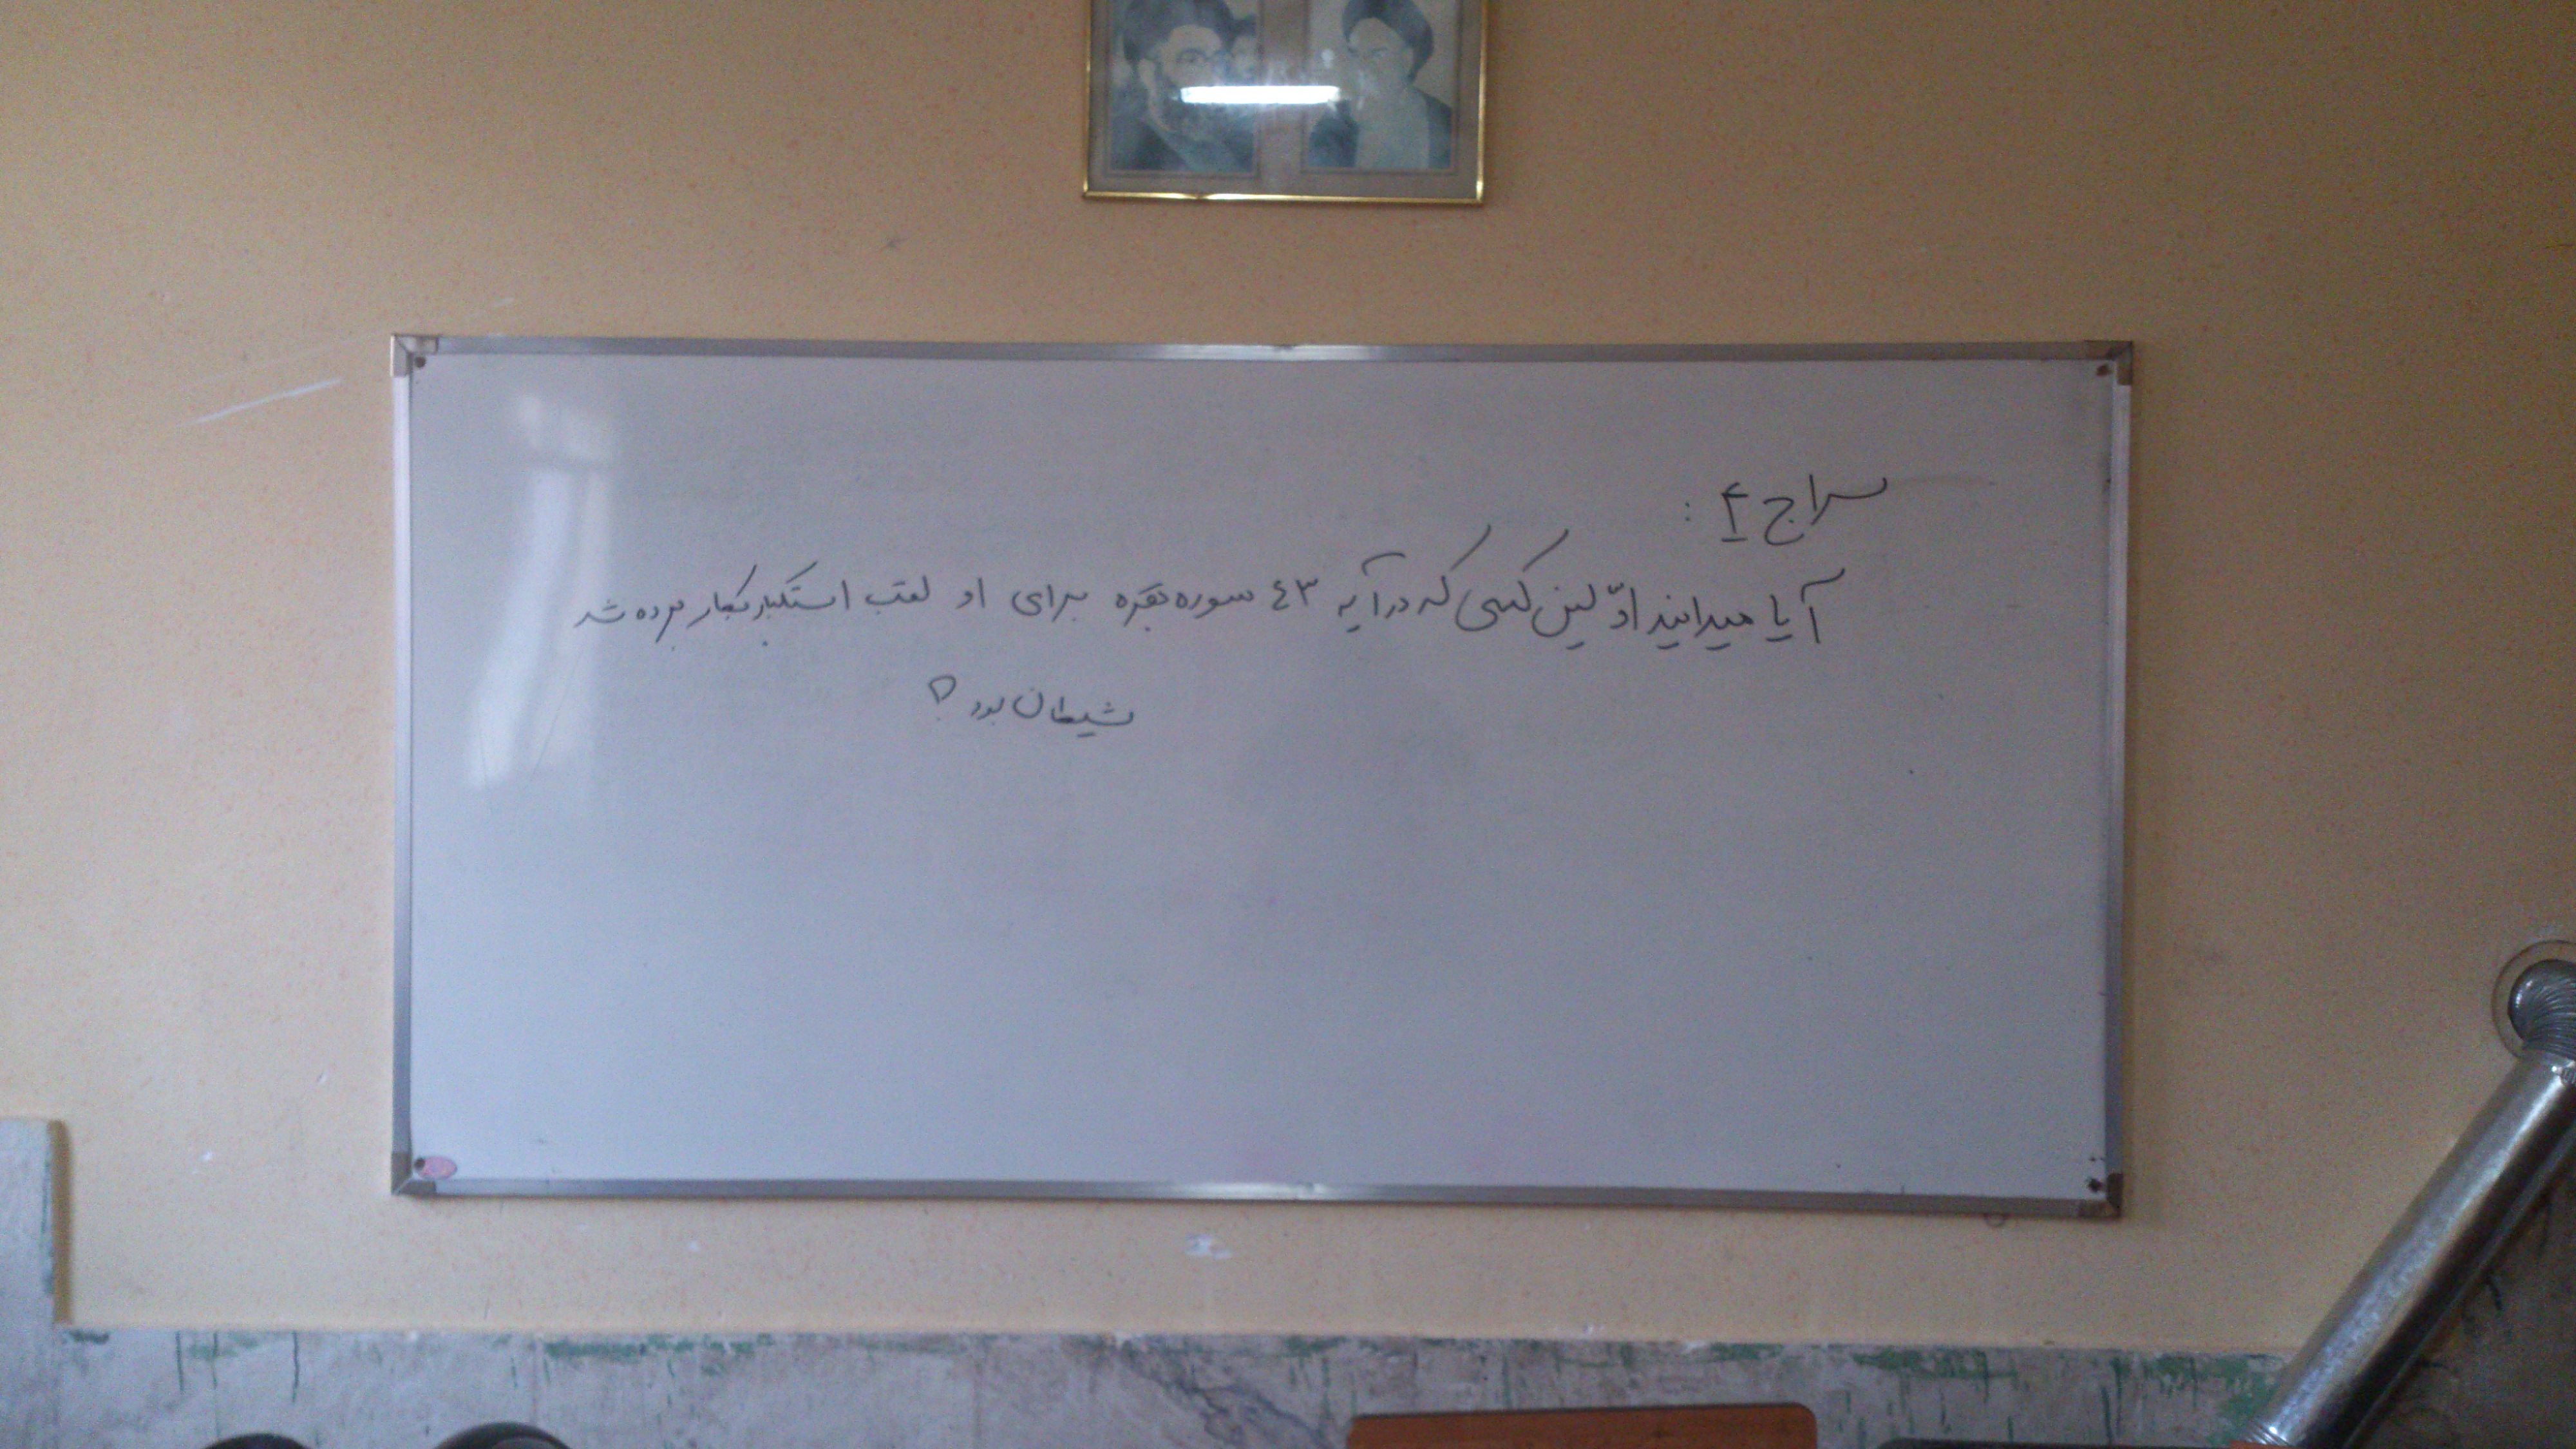 سراج ۴ :
آیا میدانید اوّلین کسی که در آیه ۴۳ سوره بقره برای او لقب استکبار بکار برده شد
شیطان بود ؟